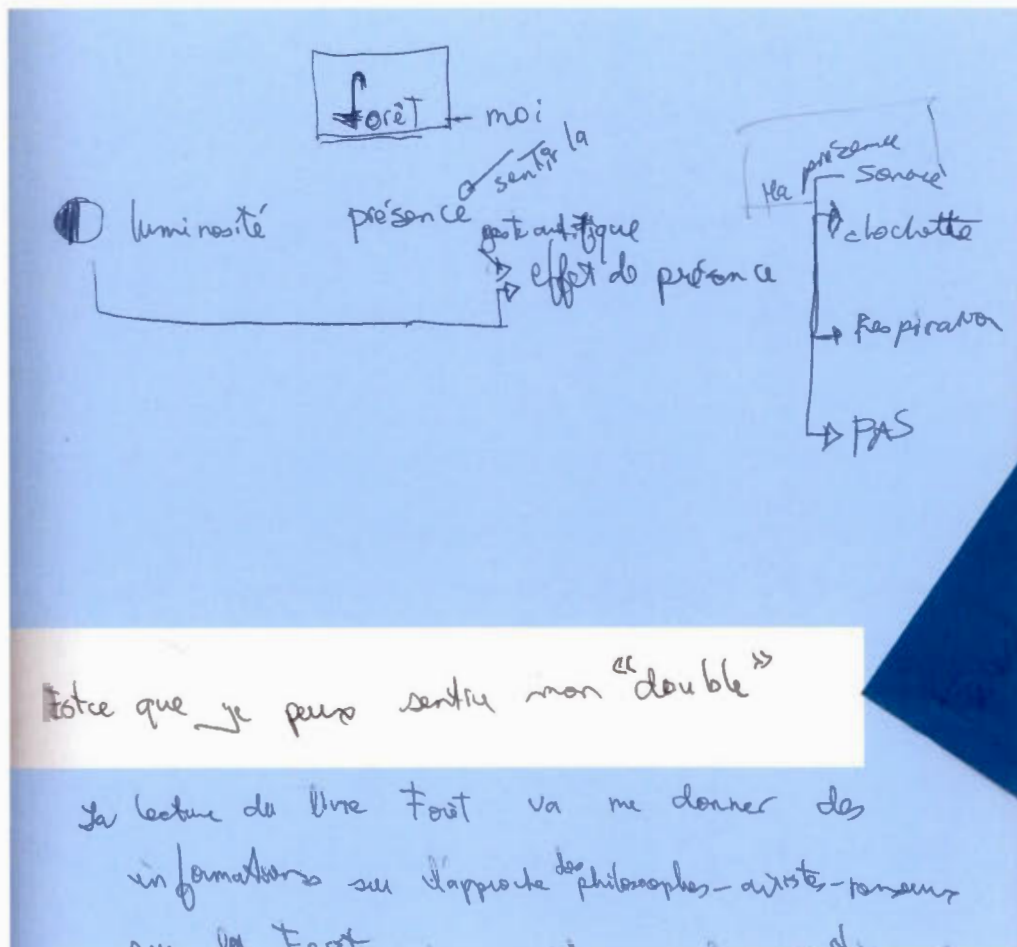 forêt moi
sentir la
luminosité présence
effet de présence
Ma présence
sonore
clochette
Respiration
PAS
Estce que je peux sentir mon "double"
La lecture du livre Forêt va me donner des
informations sur l'approche des philosophes-artistes-penseurs
sur la Forêt